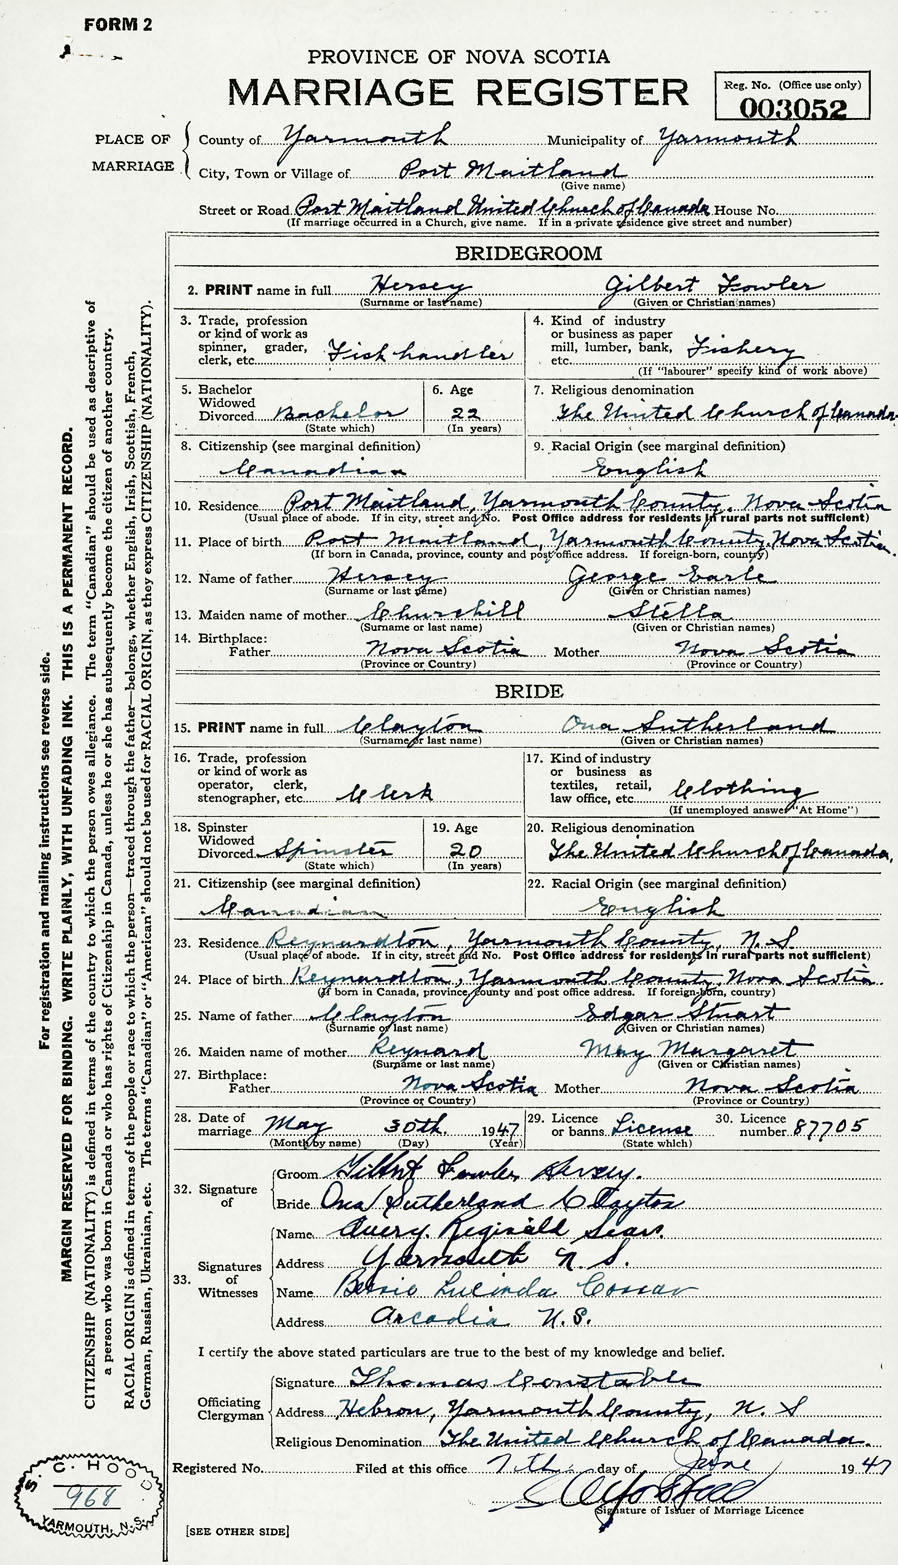 FORM 2
PROVINCE OF NOVA SCOTIA
MARRIAGE REGISTER
Reg. No. (Office use only)
003052
PLACE OF MARRIAGE
County of Yarmouth Municipality of Yarmouth
City, Town or Village of Port Maitland
(Give name)
Street or Road Port Maitland United Church of Canada House No.
(If marriage occurred in a Church, give name. If in a private residence give street and number)
BRIDEGROOM
2. PRINT name in full Hersey Gilbert Fowler
(Surname or last name) (Given or Christian names)
3. Trade, profession
or kind of work as
spinner, grader,
clerk, etc. Fish handler
4. Kind of industry
or business as paper
mill, lumber, bank,
etc. Fishery
(If "labourer" specify kind of work above)
5. Bachelor
Widowed
Divorced Bachelor
(State which)
6. Age
22
(In years)
7. Religious denomination
The United Church of Canada
8. Citizenship (see marginal definition)
Canadian
9. Racial Origin (see marginal definition)
English
10. Residence Port Maitland, Yarmouth County, Nova Scotia
(Usual place of abode. If in city, street and No. Post Office address for residents in rural parts not sufficient)
11. Place of birth Port Maitland, Yarmouth County, Nova Scotia.
(If born in Canada, province, county and post office address. If foreign-born, country)
12. Name of father Hersey George Earle
(Surname or last name) (Given or Christian names)
13. Maiden name of mother Churchill Stella
(Surname or last name) (Given or Christian names)
14. Birthplace:
Father Nova Scotia Mother Nova Scotia
(Province or Country) (Province or Country)
BRIDE
15. PRINT name in full Clayton Ona Sutherland
(Surname or last name) (Given or Christian names)
16. Trade, profession
or kind of work as
operator, clerk,
stenographer, etc. Clerk
17. Kind of industry
or business as
textiles, retail,
law office, etc. Clothing
(If unemployed answer "At Home")
18. Spinster
Widowed
Divorced Spinster
(State which)
19. Age
20
(In years)
20. Religious denomination
The United Church of Canada,
21. Citizenship (see marginal definition)
Canadian
22. Racial Origin (see marginal definition)
English
23. Residence Reynardton, Yarmouth County, N.S
(Usual place of abode. If in city, street and No. Post Office address for residents in rural parts not sufficient)
24. Place of birth Reynardton, Yarmouth County, Nova Scotia.
(If born in Canada, province, county and post office address. If foreign-born, country)
25. Name of father Clayton Edgar Stuart
(Surname or last name) (Given or Christian names)
26. Maiden name of mother Reynard May Margaret
(Surname or last name) (Given or Christian names)
27. Birthplace:
Father Nova Scotia Mother Nova Scotia
(Province or Country) (Province or Country)
28. Date of
marriage May 30th. 1947
(Month by name) (Day) (Year)
29. Licence
or banns License
(State which)
30. Licence
number 87705
32. Signature
of
Groom Gilbert Fowler Hersey.
Bride Ona Sutherland Clayton
33. Signatures
of
Witnesses
Name Avery. Reginald Sears.
Address Yarmouth N. S.
Name Bessie Lucinda
Address Arcadia N.S.
I certify the above stated particulars are true to the best of my knowledge and belief.
Officiating
Clergyman
Signature Thomas Constable
Address Hebron, Yarmouth County, N. S
Religious Denomination The United Church of Canada.
Registered No. Filed at this office 7th day of June 1947
Signature of Issuer of Marriage Licence
[SEE OTHER SIDE]
S. C. HOO
968
YARMOUTH, N.S.
For registration and mailing instructions see reverse side.
MARGIN RESERVED FOR BINDING. WRITE PLAINLY, WITH UNFADING INK. THIS IS A PERMANENT RECORD.
CITIZENSHIP (NATIONALITY) is defined in terms of the country to which the person owes allegiance. The term "Canadian" should be used as descriptive of
a person who was born in Canada or who has rights of Citizenship in Canada, unless he or she has subsequently become the citizen of another country.
RACIAL ORIGIN is defined in terms of the people or race to which the person—traced through the father—belongs, whether English, Irish, Scottish, French,
German, Russian, Ukrainian, etc. The terms "Canadian" or "American" should not be used for RACIAL ORIGIN, as they express CITIZENSHIP (NATIONALITY).